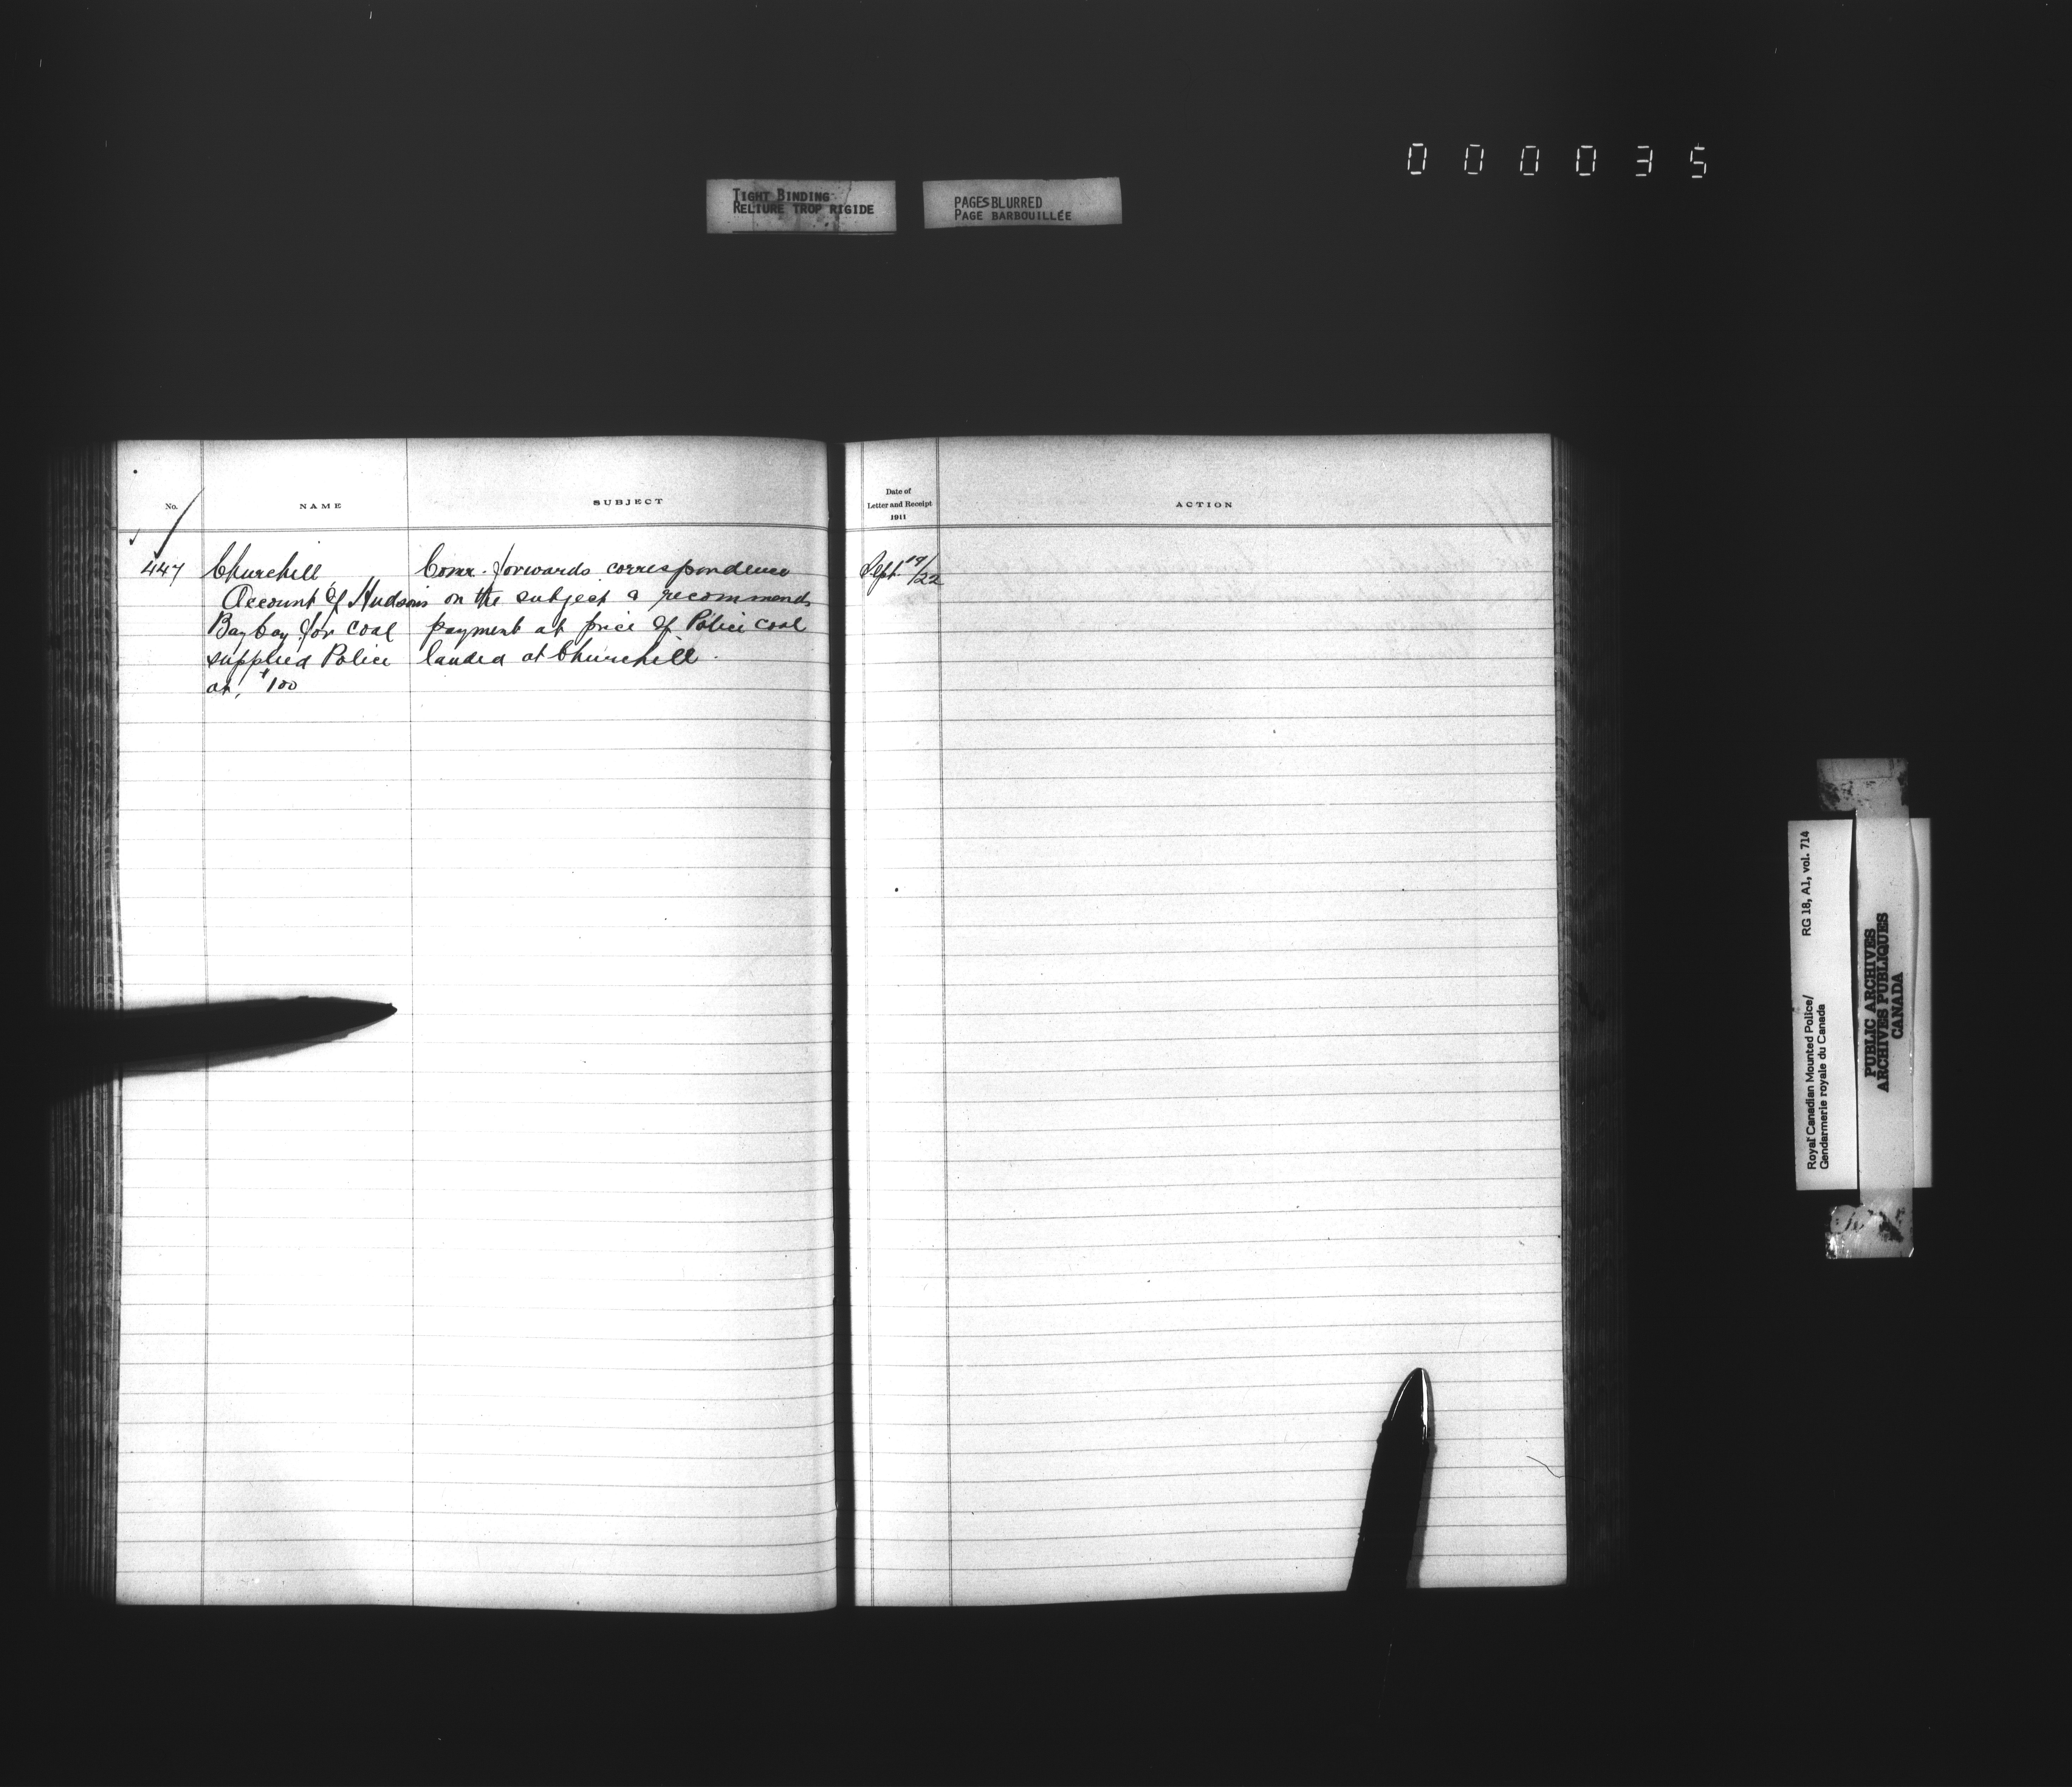 000035
TIGHT BINDING
RELIURE TROP RIGIDE
PAGES BLURRED
PAGE BARBOUILLÉE
No.
NAME
SUBJECT
Date of
Letter and Receipt
1911
ACTION
447
Churchill
Account of Hudsons
Bay Coy for coal
supplied Police
at $100
Comr. forwards correspondence
on the subject & recommends
payment at price of Police coal
landed at Churchill.
Sept. 19/22
RG 18, A1, vol. 714
Royal Canadian Mounted Police/
Gendarmerie royale du Canada
PUBLIC ARCHIVES
ARCHIVES PUBLIQUES
CANADA